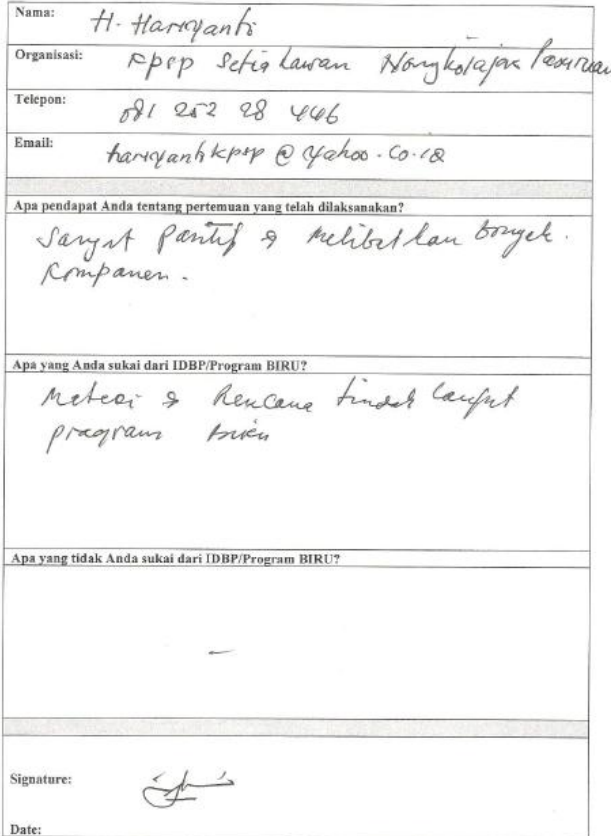 Nama: H. Hariyanti
Organisasi: KPSP Setia Kawan Nongkojajar Pasuruan
Telepon: 081 252 28 446
Email: hariyantikpsp @ yahoo.co.id
Apa pendapat Anda tentang pertemuan yang telah dilaksanakan?
Sangat & melibatkan banyak.
Komponen.
Apa yang Anda sukai dari IDBP/Program BIRU?
Materi & Rencana tindak lanjut
program biru
Apa yang tidak Anda sukai dari IDBP/Program BIRU?
-
Signature:
Date: